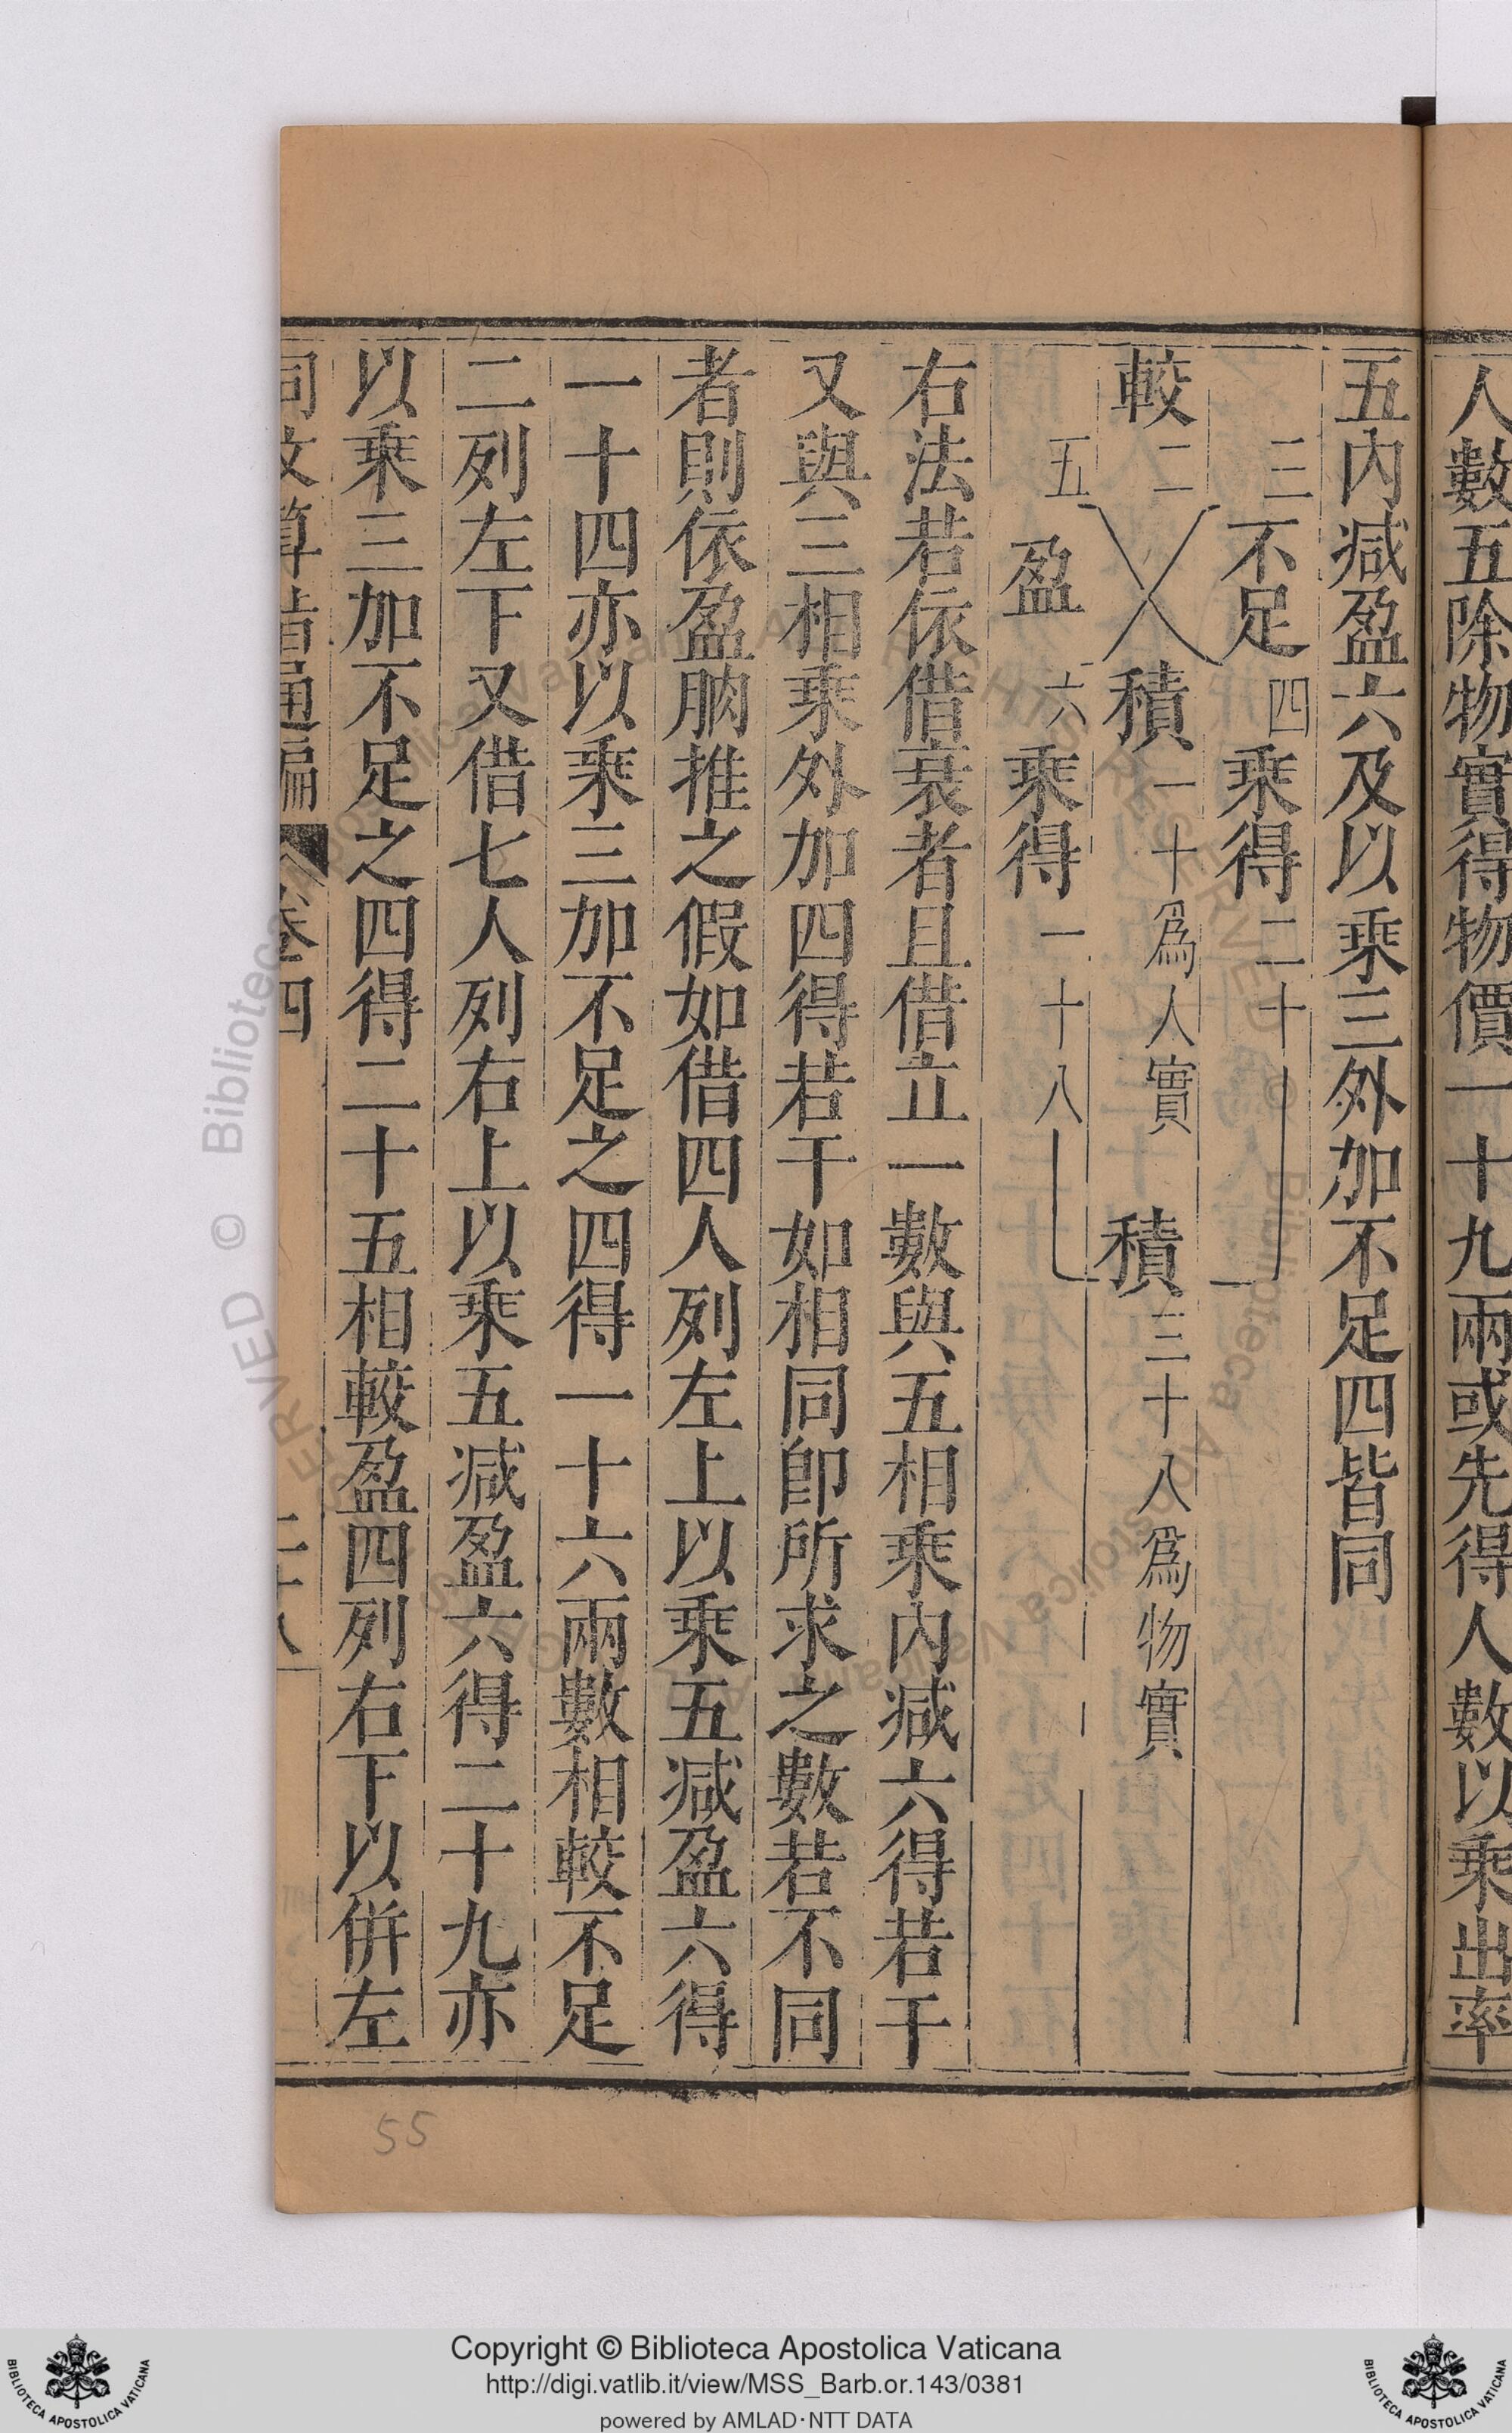 人數五除物實得物價一十九兩或先得人數以乘出率
五內減盈六及以乘三外加不足四皆同
三不足四乘得二十
較二積一十為人實積三十八為物實
五盈六乘得一十八
右法若依借衰者且借立一數與五相乘內減六得若干
又與三相乘外加四得若干如相同卽所求之數若不同
者則依盈朒推之假如借四人列左上以乘五減盈六得
一十四亦以乘三加不足之四得一十六兩數相較不足
二列左下又借七人列右上以乘五減盈六得二十九亦
以乘三加不足之四得二十五相較盈四列右下以併左
同文算指通編 卷四 二十八
55
Copyright © Biblioteca Apostolica Vaticana
http://digi.vatlib.it/view/MSS_Barb.or.143/0381
powered by AMLAD·NTT DATA
BIBLIOTECA APOSTOLICA VATICANA
BIBLIOTECA APOSTOLICA VATICANA